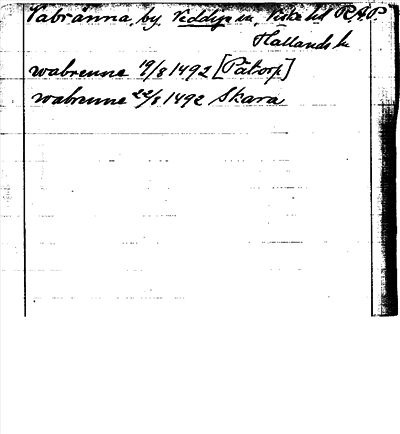 Vabränna, by Veddige sn, Viske hd R.A.P.
Hallands l.
wabrenne 19/8 1492 [Påtorp]
wabrenne 22/8 1492 Skara